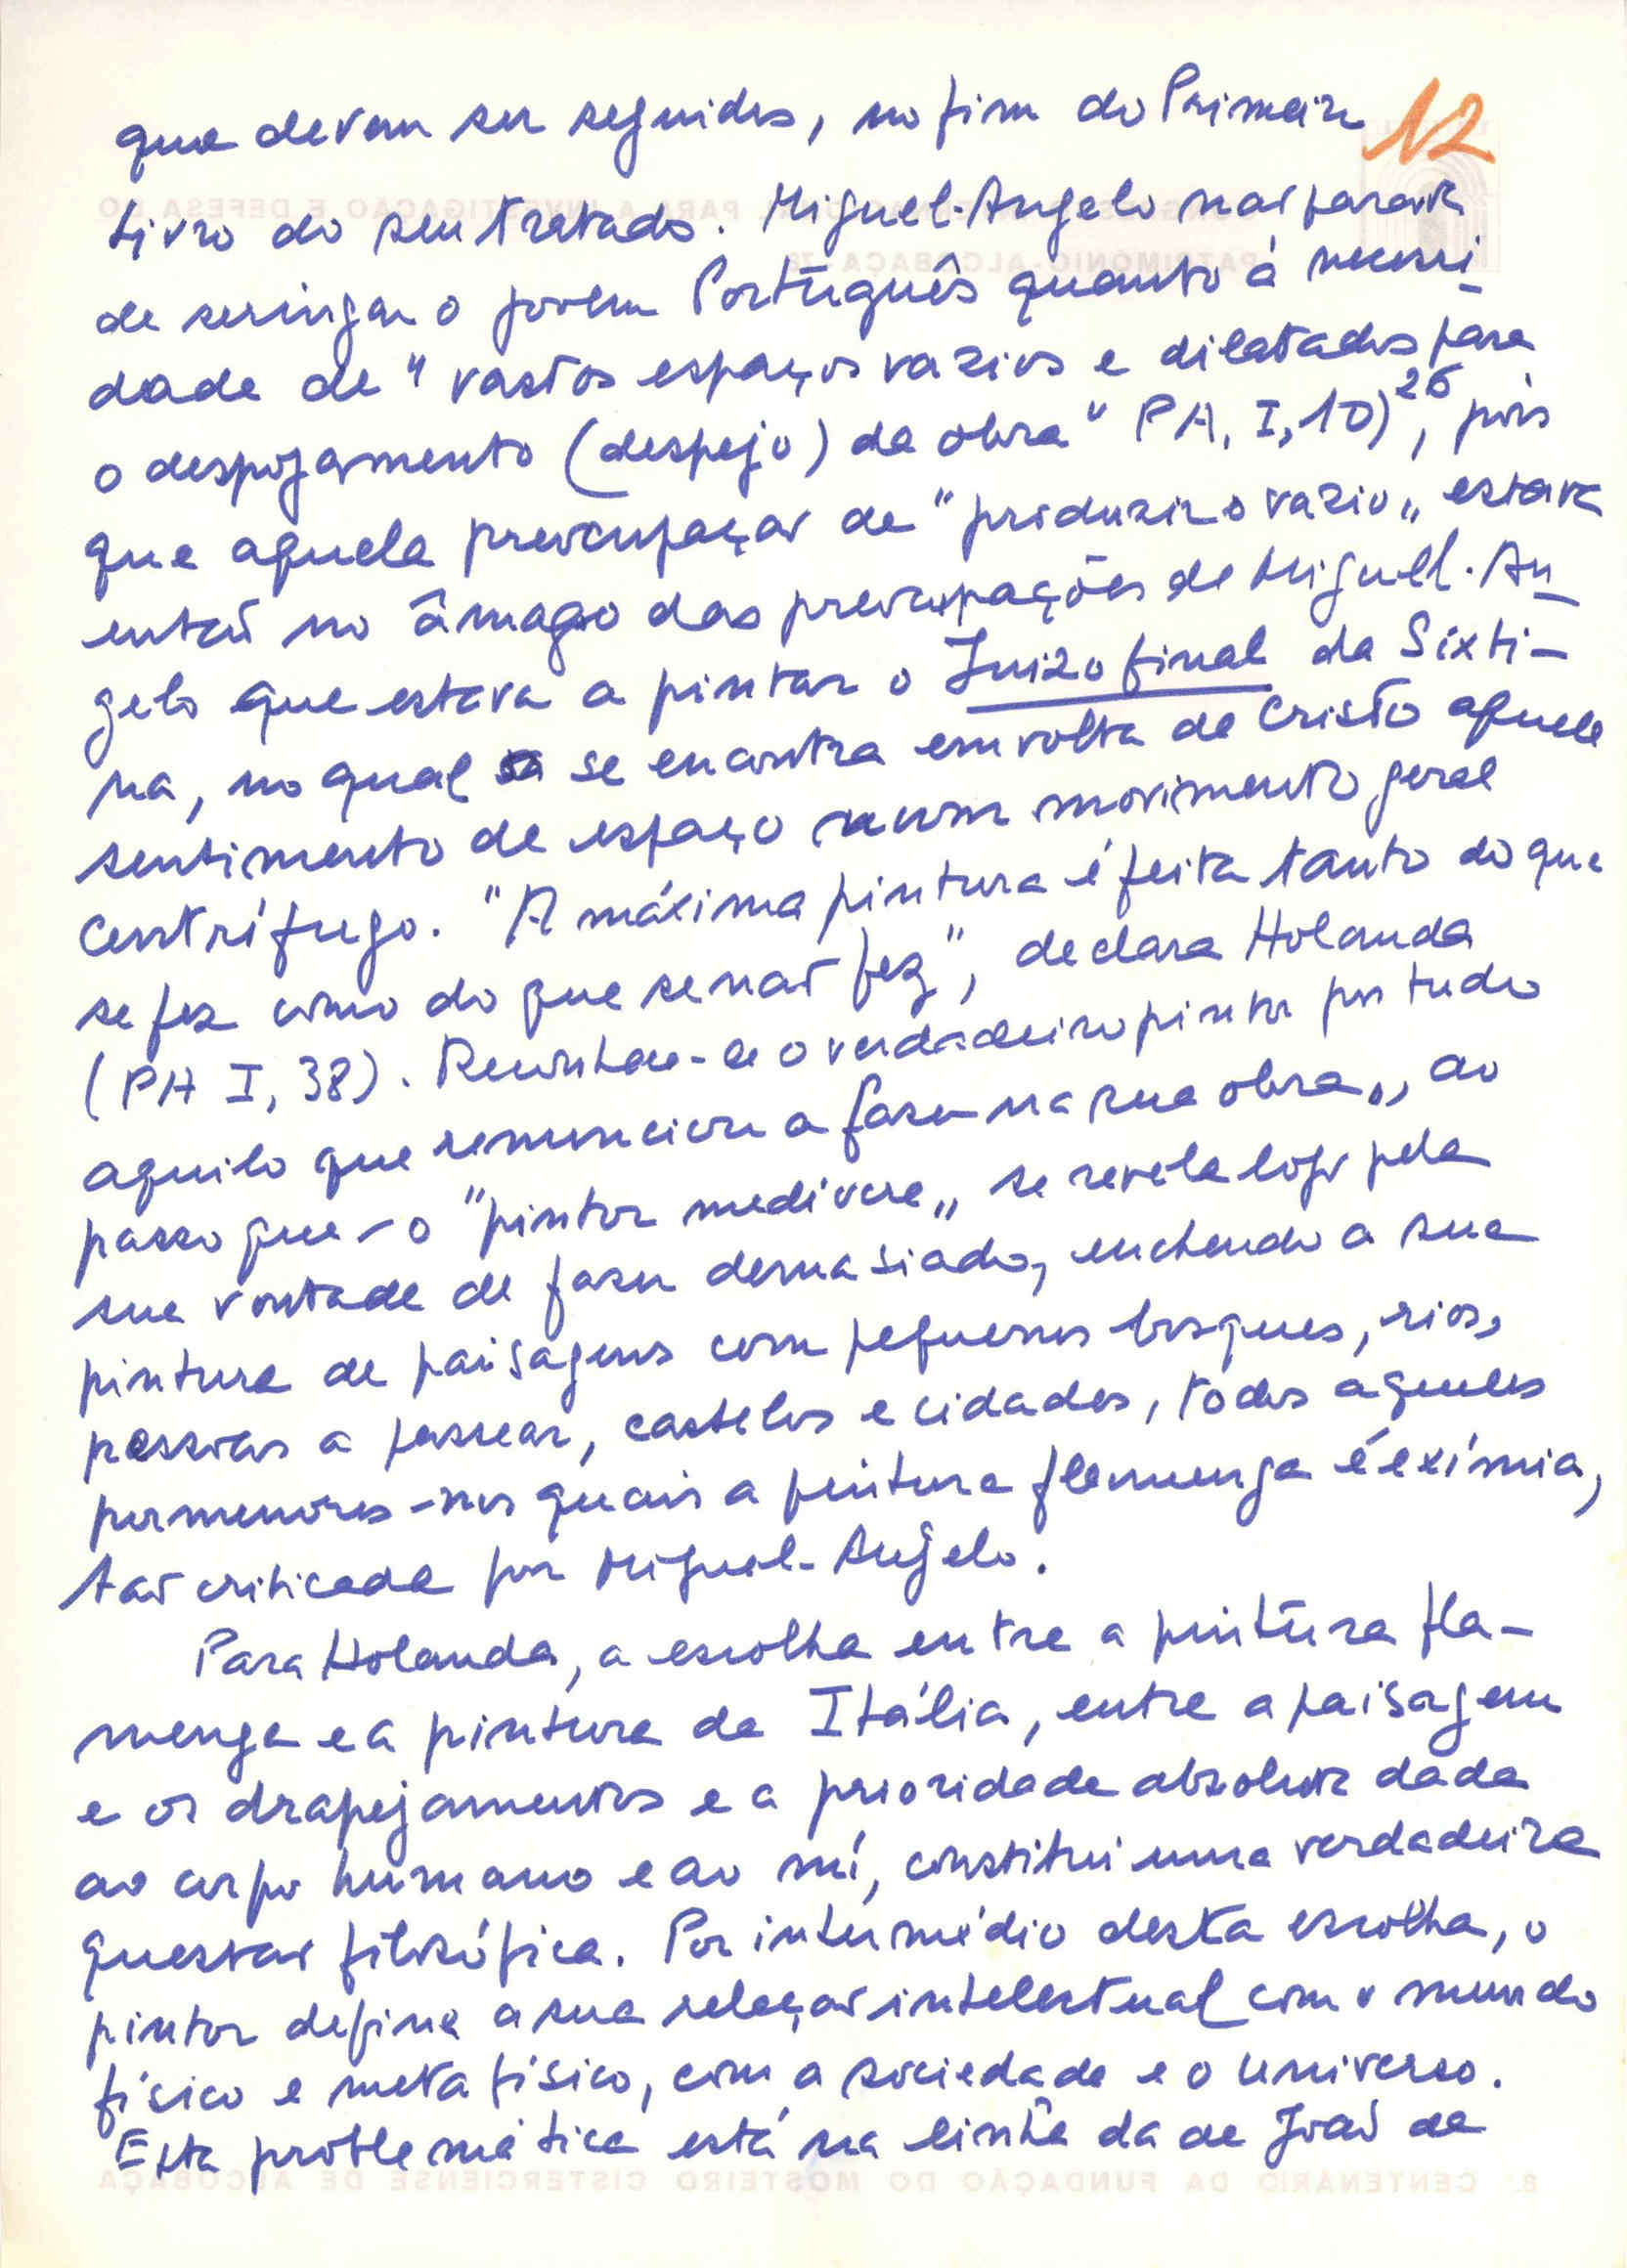 12
que devem ser seguidos, no fim do Primeiro
Livro do seu tratado. Miguel-Angelo não parava
de seringar o jovem Português quanto à necessi-
dade de "vastos espaços vazios e dilatados para
o despojamento (despejo) da obra" PA, I, 10)26, pois
que aquela preocupação de "produzir o vazio" estava
então no âmago das preocupações de Miguel-An-
gelo que estava a pintar o Juizo final da Sixti-
na, no qual se encontra em volta de Cristo aquele
sentimento de espaço num movimento geral
centrífugo. "A máxima pintura é feita tanto do que
se fez como do que se não fez", declara Holanda
(PA I, 38). Reconhece-se o verdadeiro pintor por tudo
aquilo que renunciou a fazer na sua obra, ao
passo que - o "pintor medivere" se revela logo pela
sua vontade de fazer demasiado, enchendo a sua
pintura de paisagens com pequenos bosques, rios,
pessoas a passear, castelos e cidades, todos aqueles
pormenores - nos quais a pintura flamenga é exímia,
tão criticada por Miguel-Angelo.
Para Holanda, a escolha entre a pintura fla-
menga e a pintura da Itália, entre a paisagem
e os drapejamentos e a prioridade absoluta dada
ao corpo humano e ao nú, constitui uma verdadeira
questão filosófica. Por intermédio desta escolha, o
pintor define a sua relação intelectual com o mundo
físico e metafísico, com a sociedade e o universo.
Esta problemática está na linha da de João de